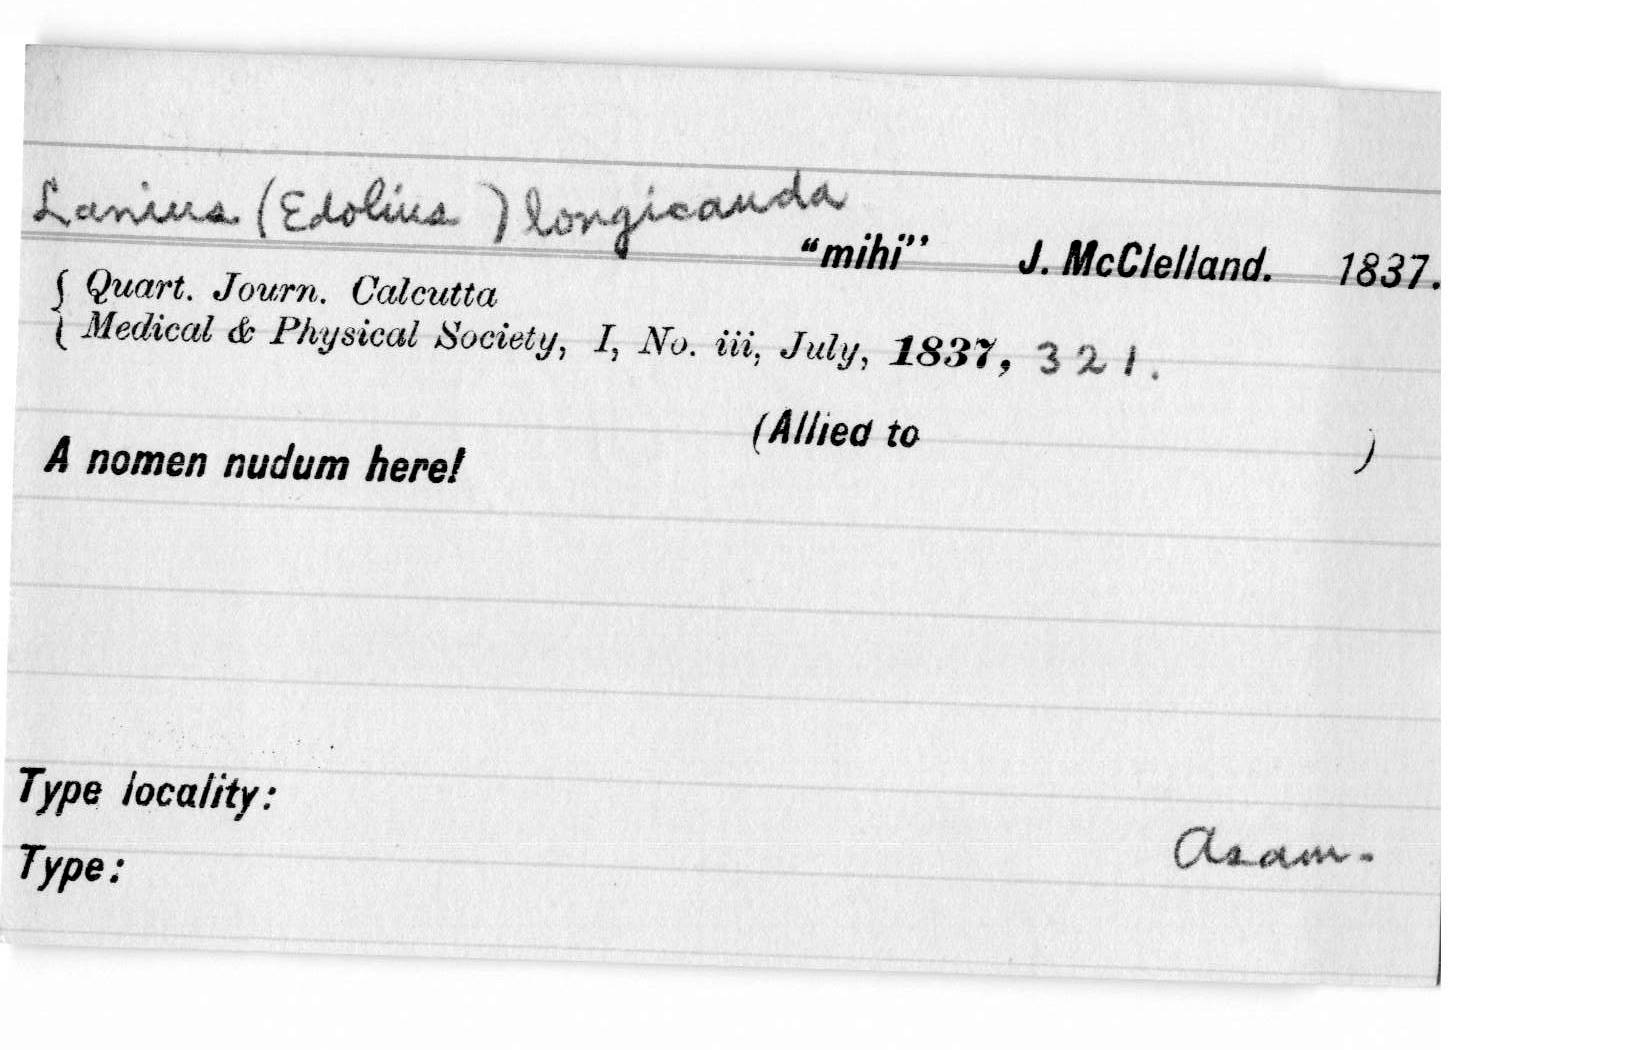 Lanius (Edolius ) longicauda
"mihi" J. McClelland. 1837.
{ Quart. Journ. Calcutta
{ Medical & Physical Society, I, No. iii, July, 1837, 321.
(Allied to )
A nomen nudum here!
Type locality:
Asam.
Type: